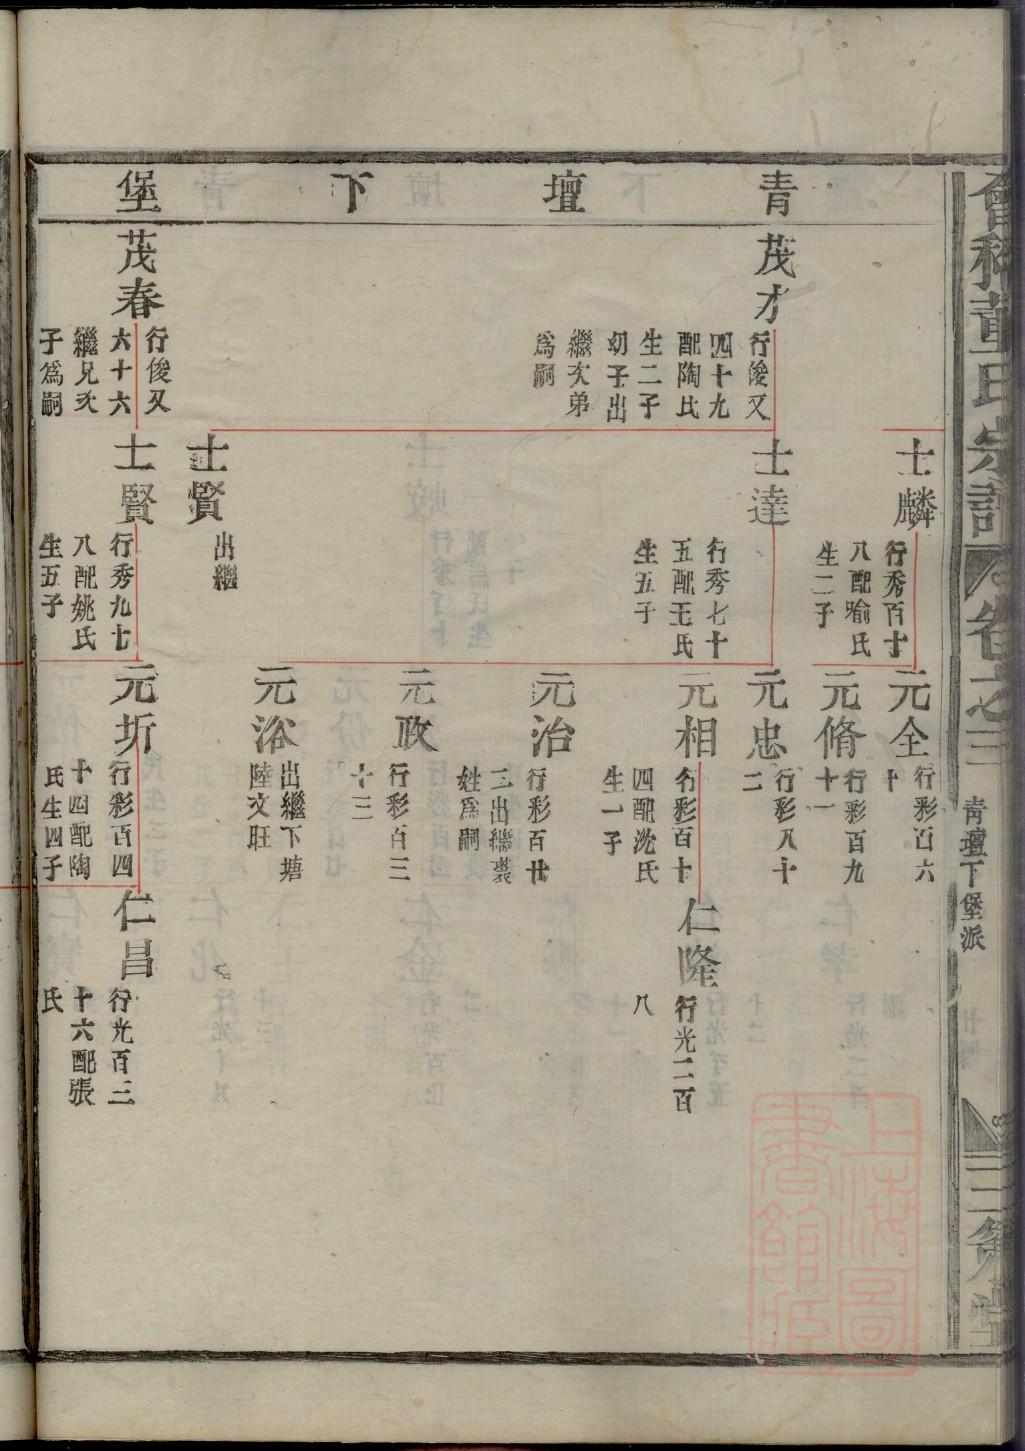 青壇下堡
茂才
行俊又
四十九
配陶氏
生二子
幼子出
繼次弟
爲嗣
茂春
行俊又
六十六
繼兄次
子爲嗣
士麟
行秀百十
八配喻氏
生二子
士達
行秀七十
五配王氏
生五子
士賢
出繼
士賢
行秀九七
八配姚氏
生五子
元全
行彩百六
十
元脩
行彩百九
十一
元忠
行彩八十
二
元相
行彩百十
四配沈氏
生一子
元治
行彩百廿
三出繼裘
姓爲嗣
元政
行彩百三
十三
元浴
出繼下塘
陸文旺
元圻
行彩百四
十四配陶
氏生四子
仁隆
行光二百
八
仁昌
行光百三
十六配張
氏
會稽董氏宗譜
卷之三
青壇下堡派
上海圖書館藏